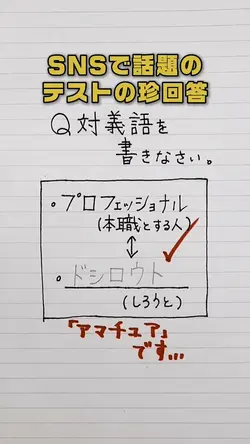 SNSで話題の
テストの珍回答
Q 対義語を
書きなさい。
・プロフェッショナル
(本職とする人)
・ドシロウト
(しろうと)
「アマチュア」
です…